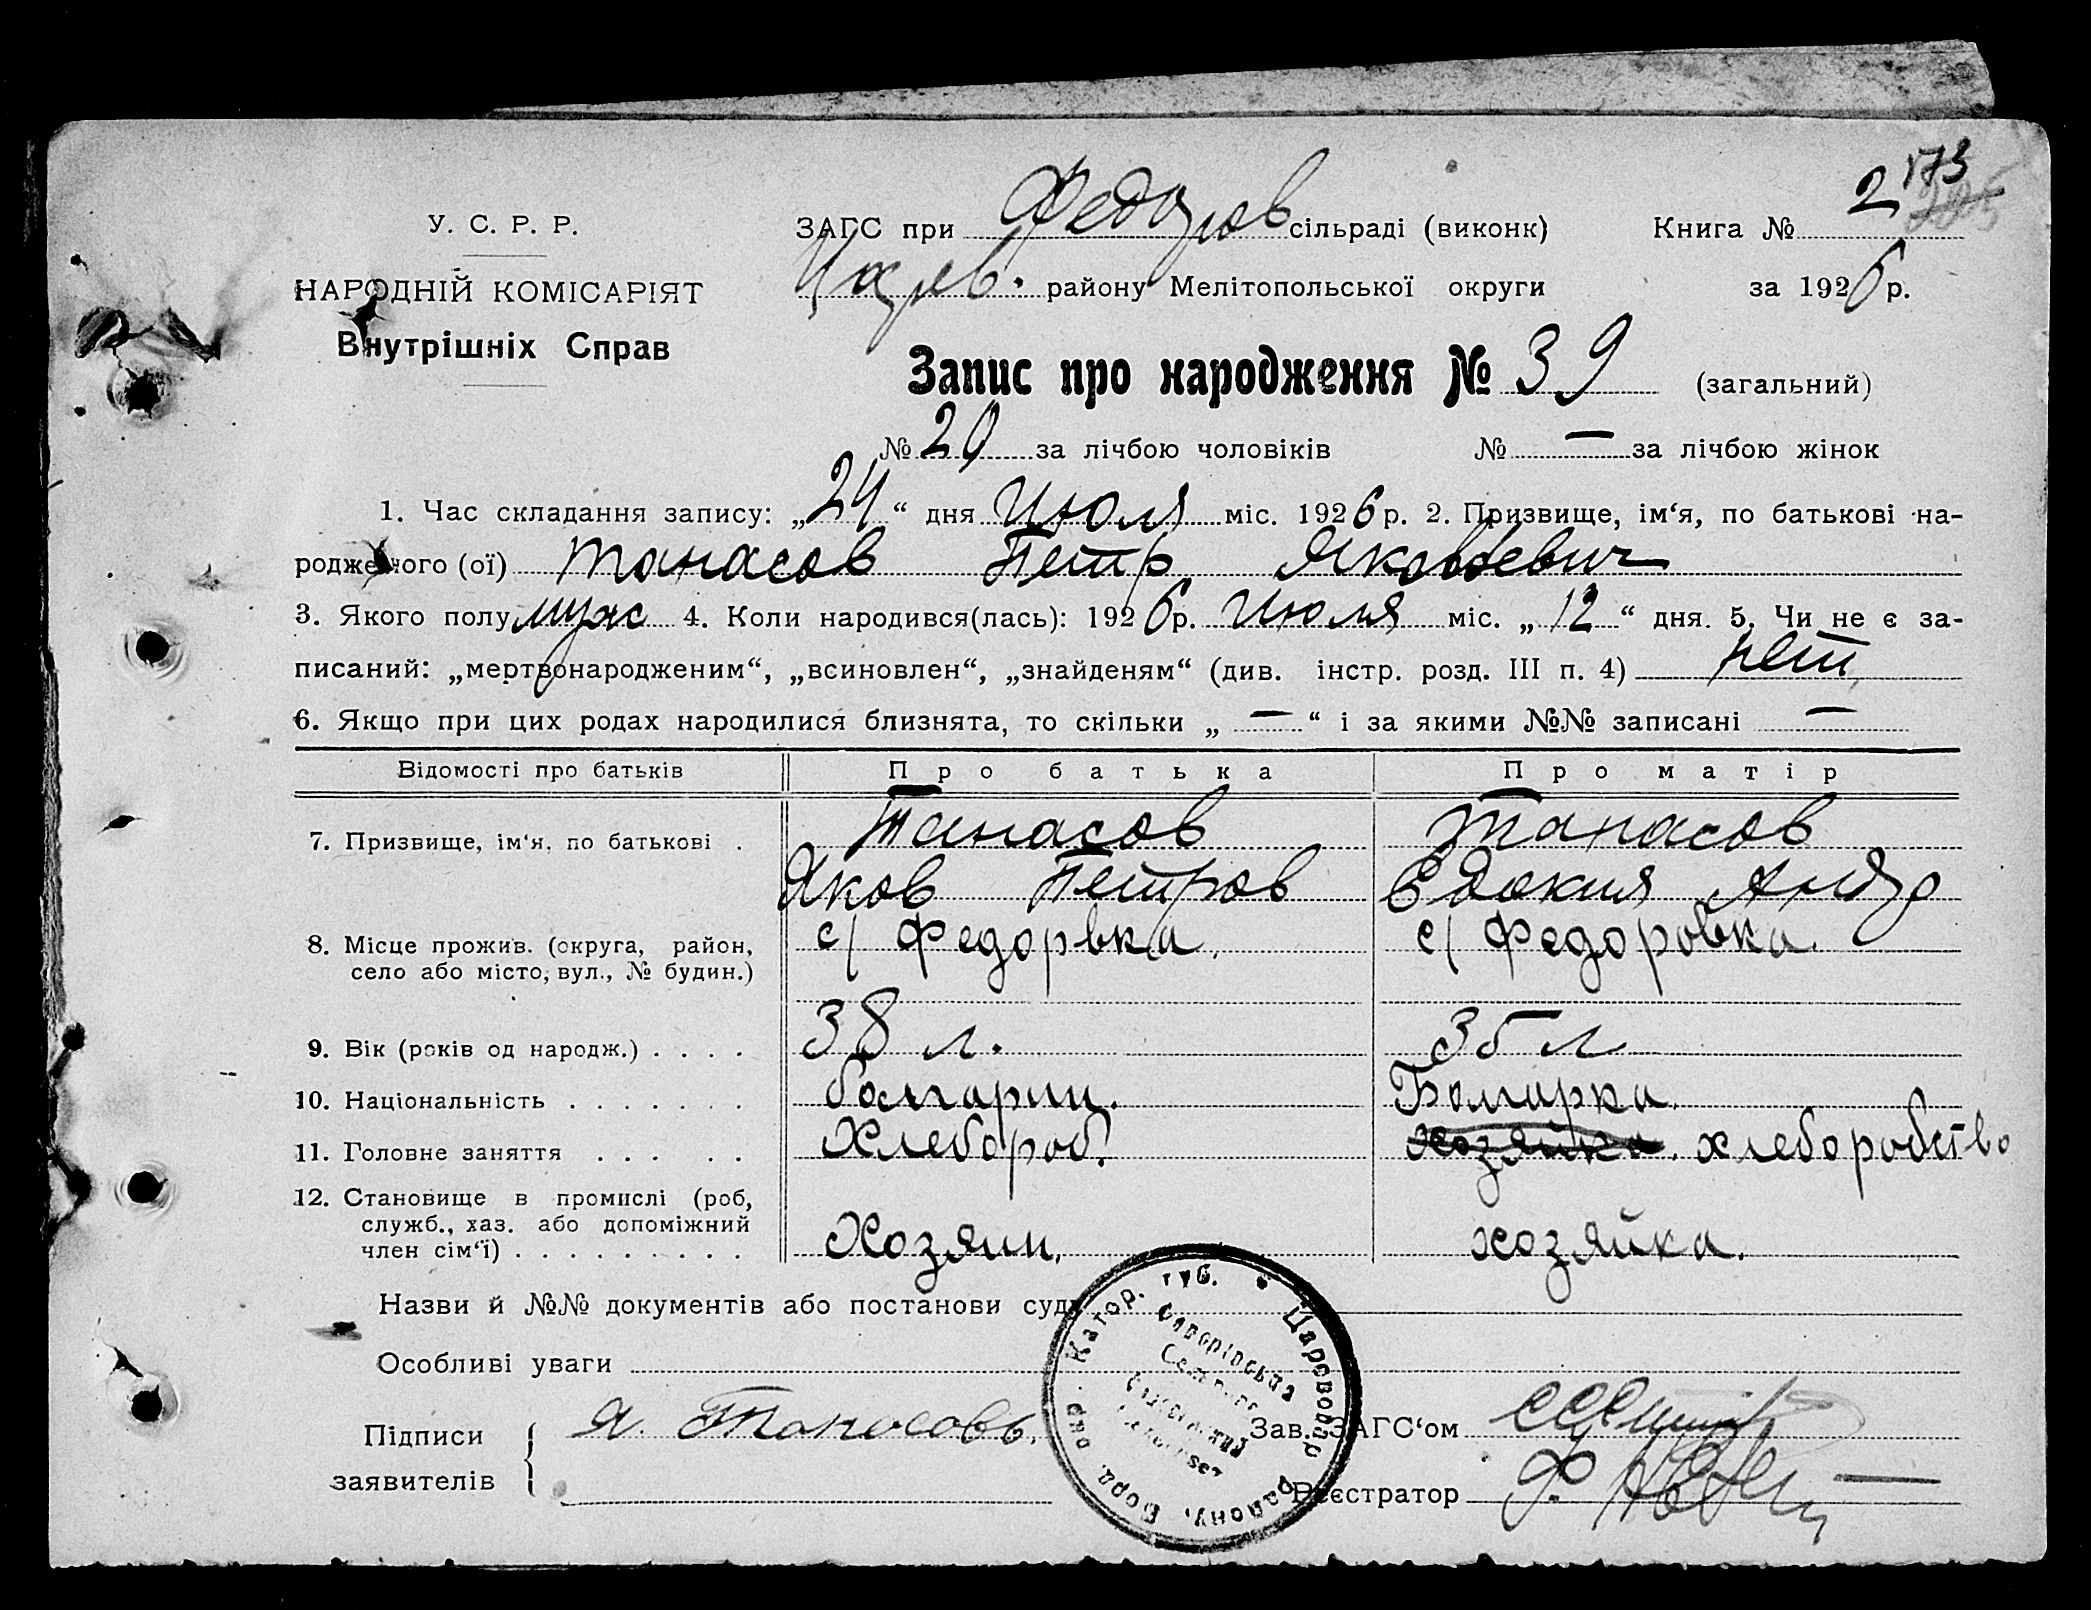 173
У. С. Р. Р.
ЗАГС при Федоров сільраді (виконк) Книга № 2
НАРОДНІЙ КОМІСАРІЯТ
Царев. району Мелітопольської округи за 1926 р.
Внутрішніх Справ
Запис про народження № 39 (загальний)
№ 20 за лічбою чоловіків № — за лічбою жінок
1. Час складання запису: „24“ дня Июля міс. 1926 р. 2. Призвище, ім‘я, по батькові на-
родженого (ої) Танасов Петр Яковлевич
3. Якого полу муж 4. Коли народився(лась): 1926 р. Июля міс. „12“ дня. 5. Чи не є за-
писаний: „мертвонародженим“, „всиновлен“, „знайденям“ (див. інстр. розд. III п. 4) нет
6. Якщо при цих родах народилися близнята, то скільки „ — “ і за якими №№ записані —
Відомості про батьків Про батька Про матір
7. Призвище, ім‘я, по батькові . Танасов Танасов
Яков Петров Евдокия Андр
8. Місце прожив. (округа, район, с/ Федорвка, с/ Федоровка.
село або місто, вул., № будин.)
9. Вік (років од народж.) . . . . 38 л. 35 л
10. Національність . . . . . . . болгарин. Болгарка.
11. Головне заняття . . . . . Хлебороб. хозяйка. хлеборобство
12. Становище в промислі (роб,
служб., хаз. або допоміжний
член сім‘ї) . . . . . . . . . Хозяин. хозяйка.
Назви й №№ документів або постанови суду
Особливі уваги
Підписи
заявителів
Я. Танасовъ.
Зав. ЗАГС‘ом
Реєстратор
Катер. губ. * Царевовар району, Берд. окр.